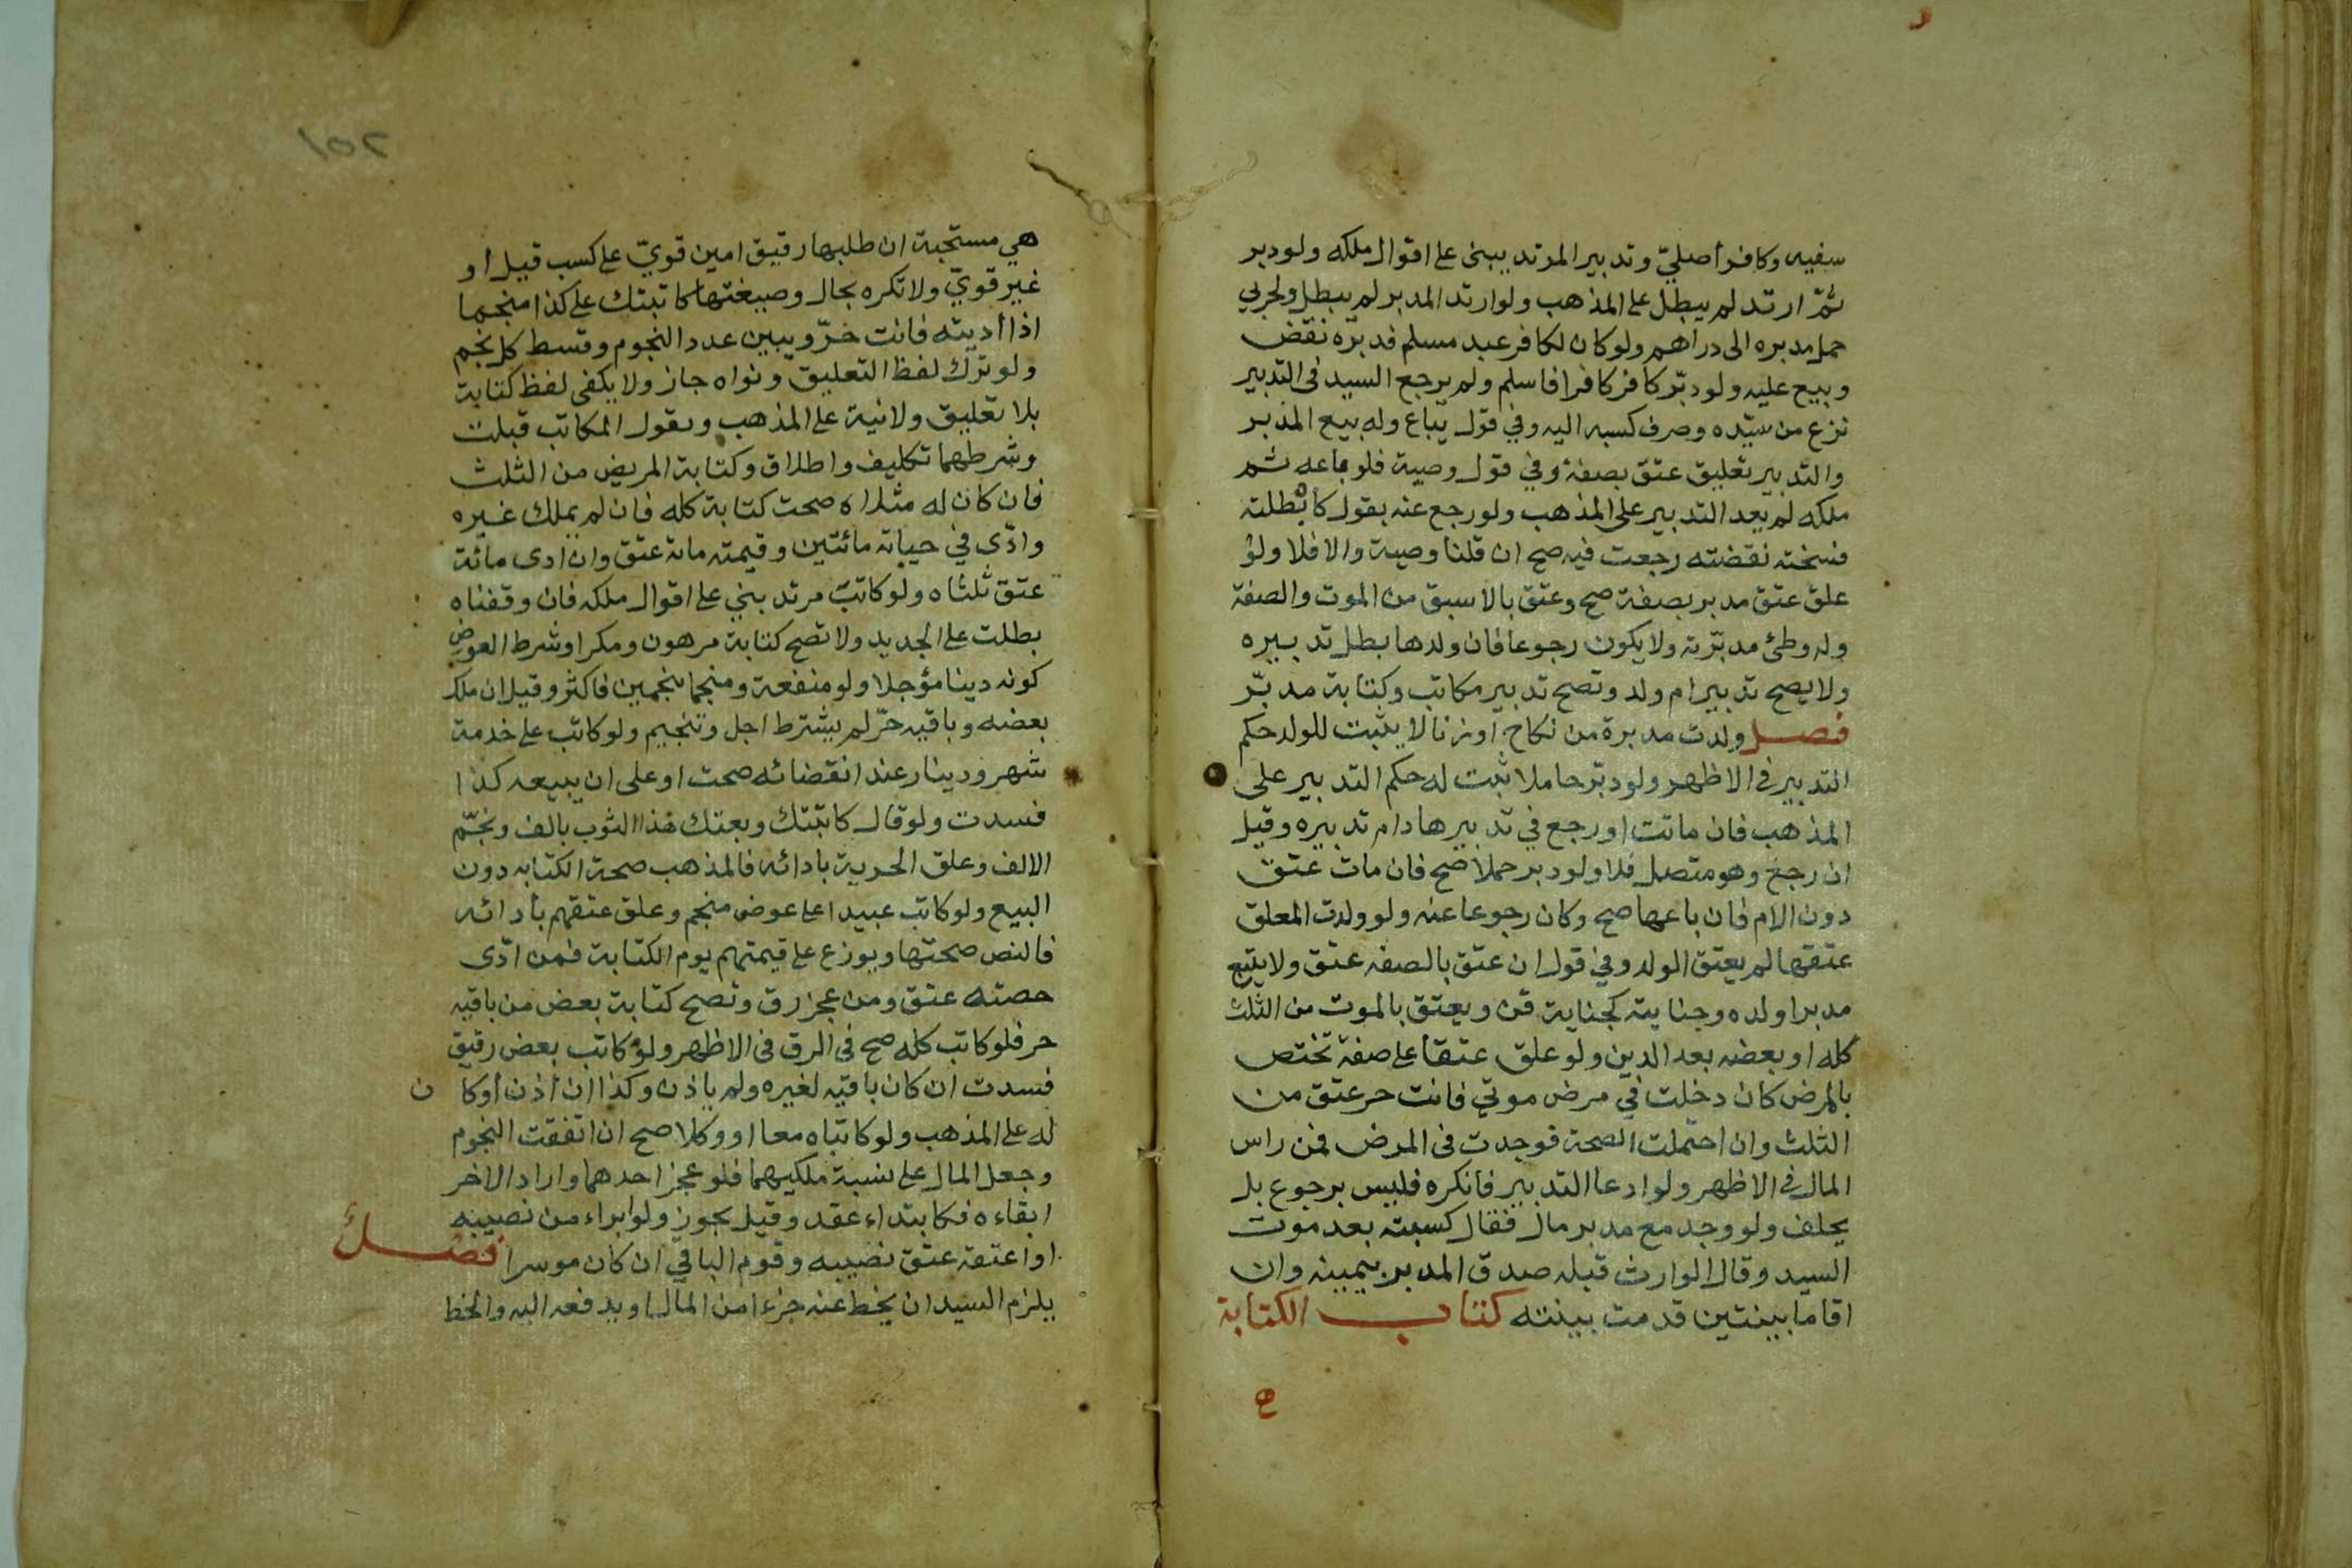 سفيه وكافر أصليّ وتدبير المرتد يبنى على اقوال ملكه ولو دبر
ثمّ ارتد لم يبطل على المذهب ولو ارتد المدبر لم يبطل ولحربي
حمل مدبره الى دراهم ولو كان لكافر عبد مسلم فدبّره نقض
وبيع عليه ولو دبّر كافر كافرا فاسلم ولم يرجع السيد فى التدبير
نزع من سيّده وصرف كسبه اليه وفي قول يباع وله بيع المدبر
والتدبير تعليق عتق بصفة وفي قول وصية فلو باعه ثم
ملكه لم يعد التدبير على المذهب ولو رجع عنه بقول كابطلته
فسخته نقضته رجعت فيه صح ان قلنا وصية والا فلا ولو
علق عتق مدبر بصفة صح وعتق بالاسبق من الموت والصفة
وله وطئ مدبّرته ولا يكون رجوعا فان ولدها بطل تدبيره
ولا يصح تدبير ام ولد وتصح تدبير مكاتب وكتابة مدبّر
فصل ولدت مدبرة من نكاح او زنا لا يثبت للولد حكم
التدبير في الاظهر ولو دبّر حاملا ثبت له حكم التدبير على
المذهب فان ماتت او رجع في تدبيرها دام تدبيره وقيل
ان رجع وهو متصل فلا ولو دبر حملا صح فان مات عتق
دون الام فان باعها صح وكان رجوعا عنه ولو ولدت المعلق
عتقها لم يعتق الولد وفي قول ان عتق بالصفه عتق ولا يتبع
مدبرا ولده وجنايته كجناية قن ويعتق بالموت من الثلث
كله او بعضه بعد الدين ولو علق عتقا على صفة تختص
بالمرض كان دخلت في مرض موتي فانت حر عتق من
الثلث وان احتملت الصحة فوجدت فى المرض فمن راس
المال في الاظهر ولو ادعا التدبير فانكره فليس برجوع بل
يحلف ولو وجد مع مدبر مال فقال كسبته بعد موت
السيد وقال الوارث قبله صدق المدبر بيمينه وان
اقاما بينتين قدمت بينته كتاب الكتابة
١٥٢
هي مستحبة ان طلبها رقيق امين قويّ على كسب قيل او
غير قويّ ولا تكره بحال وصيغتها كاتبتك على كذا منجما
اذا أديته فانت حرّ ويبين عدد النجوم وقسط كل نجم
ولو ترك لفظ التعليق ونواه جاز ولا يكفى لفظ كتابة
بلا تعليق ولا نية على المذهب ويقول المكاتب قبلت
وشرطهما تكليف واطلاق وكتابة المريض من الثلث
فان كان له مثلاه صحت كتابة كله فان لم يملك غيره
وادّى في حياته مائتين وقيمته مائة عتق وان ادى مائة
عتق ثلثاه ولو كاتب مرتد بني على اقوال ملكه فان وقفناه
بطلت على الجديد ولا تصح كتابة مرهون ومكرا وشرط العوض
كونه دينا مؤجلا ولو منفعة ومنجما بنجمين فاكثر وقيل ان ملك
بعضه وباقيه حرّ لم يشترط اجل وتنجيم ولو كاتب على خدمة
شهر ودينار عند انقضائه صحت او على ان يبيعه كذا
فسدت ولو قال كاتبتك وبعتك هذا الثوب بالف ونجّم
الالف وعلق الحرية بادائه فالمذهب صحة الكتابه دون
البيع ولو كاتب عبيدا على عوض منجم وعلق عتقهم بأدائه
فالنص صحتها ويوزع على قيمتهم يوم الكتابة فمن ادّى
حصته عتق ومن عجز رق وتصح كتابة بعض من باقيه
حر فلو كاتب كله صح في الرق فى الاظهر ولو كاتب بعض رقيق
فسدت ان كان باقيه لغيره ولم ياذن وكذا ان أذن أوكا ن
له على المذهب ولو كاتباه معا او وكلا صح ان اتفقت النجوم
وجعل المال على نسبة ملكيهما فلو عجز احدهما واراد الاخر
ابقاءه فكابتداء عقد وقيل يجوز ولو ابراء من نصيبه
او اعتقه عتق نصيبه وقوم الباقي ان كان موسرا فصل
يلزم السيد ان يحط عنه جزءا من المال او يدفعه اليه والحط